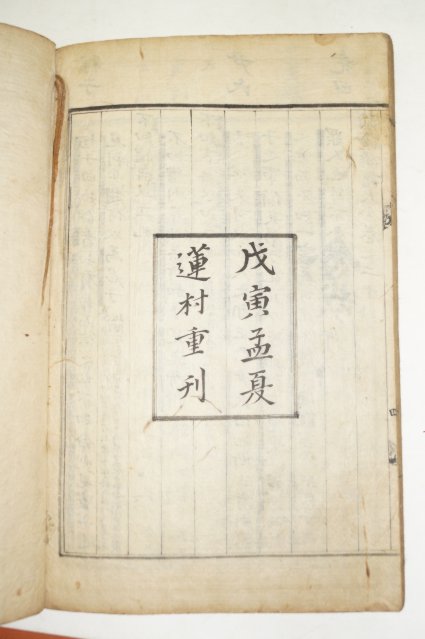 戊寅孟夏
蓮村重刊